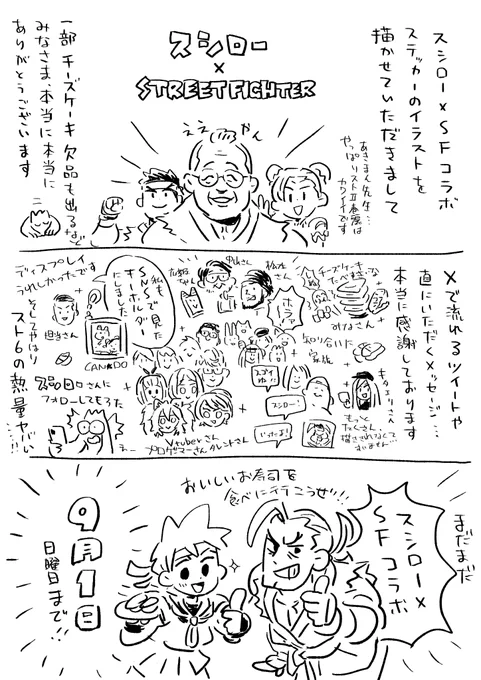 スシロー×SFコラボ
ステッカーのイラストを
描かせていただきまして
スシロー
×
STREET FIGHTER
一部チーズケーキ欠品も出るなど
みなさま、本当に本当に
ありがとうございます
ええやん
あきまん先生…
やっぱりストⅡ春麗は
カワイイです
Xで流れるツイートや
直にいただくメッセージ…
本当に感謝しております
チーズケーキ
たべきった
みなさん
知り合いた
家族
キタエリさん
もっと
たくさん!
描ききれなくて
すいません…
中山さん
松本さん
ホラァ
スゴイ
ゆった
スシロー!
いったよ!
私もSNSで見た
キーホルダー
にしました
CAN★DO
Vtuberさん
プロゲマーさん タレントさん
ディスプレイ
うれしかったです
担当さん
さんに
フォローしてもろた
そしてやはり
スト6の熱量ヤバい
……!!
まだまだ
スシロー×
SFコラボ
おいしいお寿司を
食べに行こうぜ!!!
9月1日
日曜日まで!!